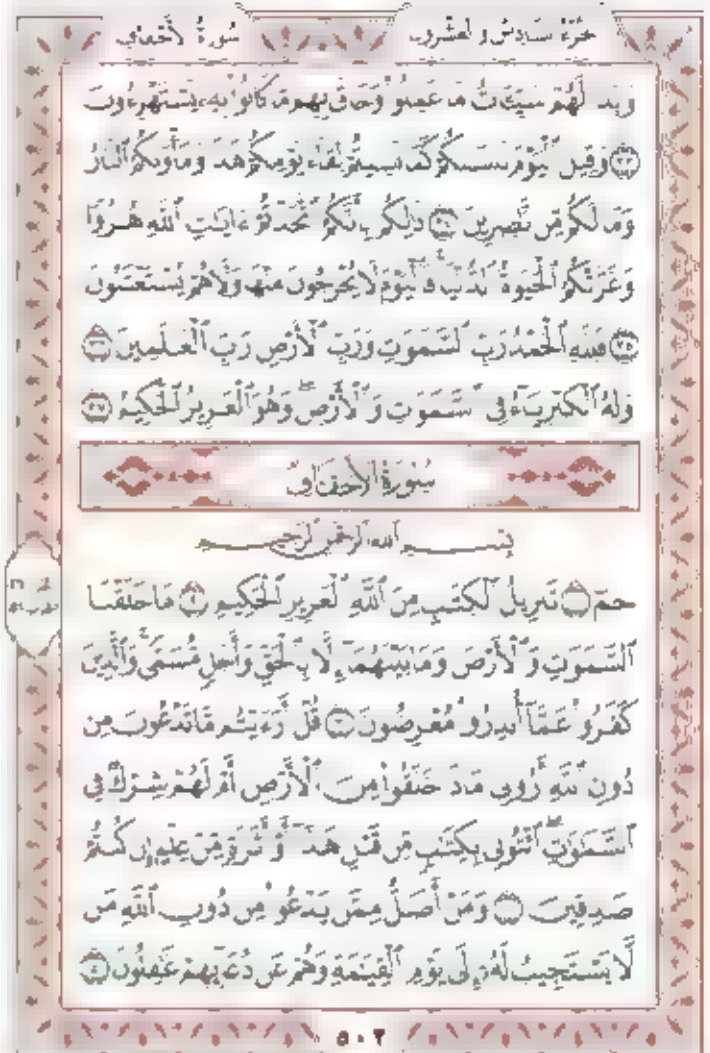 الجزء السادس والعشرون سورة الأحقاف
وَبَدَا لَهُمْ سَيِّـَٔاتُ مَا عَمِلُوا۟ وَحَاقَ بِهِم مَّا كَانُوا۟ بِهِۦ يَسْتَهْزِءُونَ
٣٣ وَقِيلَ ٱلْيَوْمَ نَنسَىٰكُمْ كَمَا نَسِيتُمْ لِقَآءَ يَوْمِكُمْ هَٰذَا وَمَأْوَىٰكُمُ ٱلنَّارُ
وَمَا لَكُم مِّن نَّٰصِرِينَ ٣٤ ذَٰلِكُم بِأَنَّكُمُ ٱتَّخَذْتُمْ ءَايَٰتِ ٱللَّهِ هُزُوًا
وَغَرَّتْكُمُ ٱلْحَيَوٰةُ ٱلدُّنْيَا فَٱلْيَوْمَ لَا يُخْرَجُونَ مِنْهَا وَلَا هُمْ يُسْتَعْتَبُونَ
٣٥ فَلِلَّهِ ٱلْحَمْدُ رَبِّ ٱلسَّمَٰوَٰتِ وَرَبِّ ٱلْأَرْضِ رَبِّ ٱلْعَٰلَمِينَ ٣٦
وَلَهُ ٱلْكِبْرِيَآءُ فِى ٱلسَّمَٰوَٰتِ وَٱلْأَرْضِ وَهُوَ ٱلْعَزِيزُ ٱلْحَكِيمُ ٣٧
سُورَةُ الأَحْقَافِ
بِسْمِ ٱللَّهِ ٱلرَّحْمَٰنِ ٱلرَّحِيمِ
حمٓ ١ تَنزِيلُ ٱلْكِتَٰبِ مِنَ ٱللَّهِ ٱلْعَزِيزِ ٱلْحَكِيمِ ٢ مَا خَلَقْنَا
ٱلسَّمَٰوَٰتِ وَٱلْأَرْضَ وَمَا بَيْنَهُمَآ إِلَّا بِٱلْحَقِّ وَأَجَلٍ مُّسَمًّى وَٱلَّذِينَ
كَفَرُوا۟ عَمَّآ أُنذِرُوا۟ مُعْرِضُونَ ٣ قُلْ أَرَءَيْتُم مَّا تَدْعُونَ مِن
دُونِ ٱللَّهِ أَرُونِى مَاذَا خَلَقُوا۟ مِنَ ٱلْأَرْضِ أَمْ لَهُمْ شِرْكٌ فِى
ٱلسَّمَٰوَٰتِ ٱئْتُونِى بِكِتَٰبٍ مِّن قَبْلِ هَٰذَآ أَوْ أَثَٰرَةٍ مِّنْ عِلْمٍ إِن كُنتُمْ
صَٰدِقِينَ ٤ وَمَنْ أَضَلُّ مِمَّن يَدْعُوا۟ مِن دُونِ ٱللَّهِ مَن
لَّا يَسْتَجِيبُ لَهُۥٓ إِلَىٰ يَوْمِ ٱلْقِيَٰمَةِ وَهُمْ عَن دُعَآئِهِمْ غَٰفِلُونَ ٥
٥٠٢